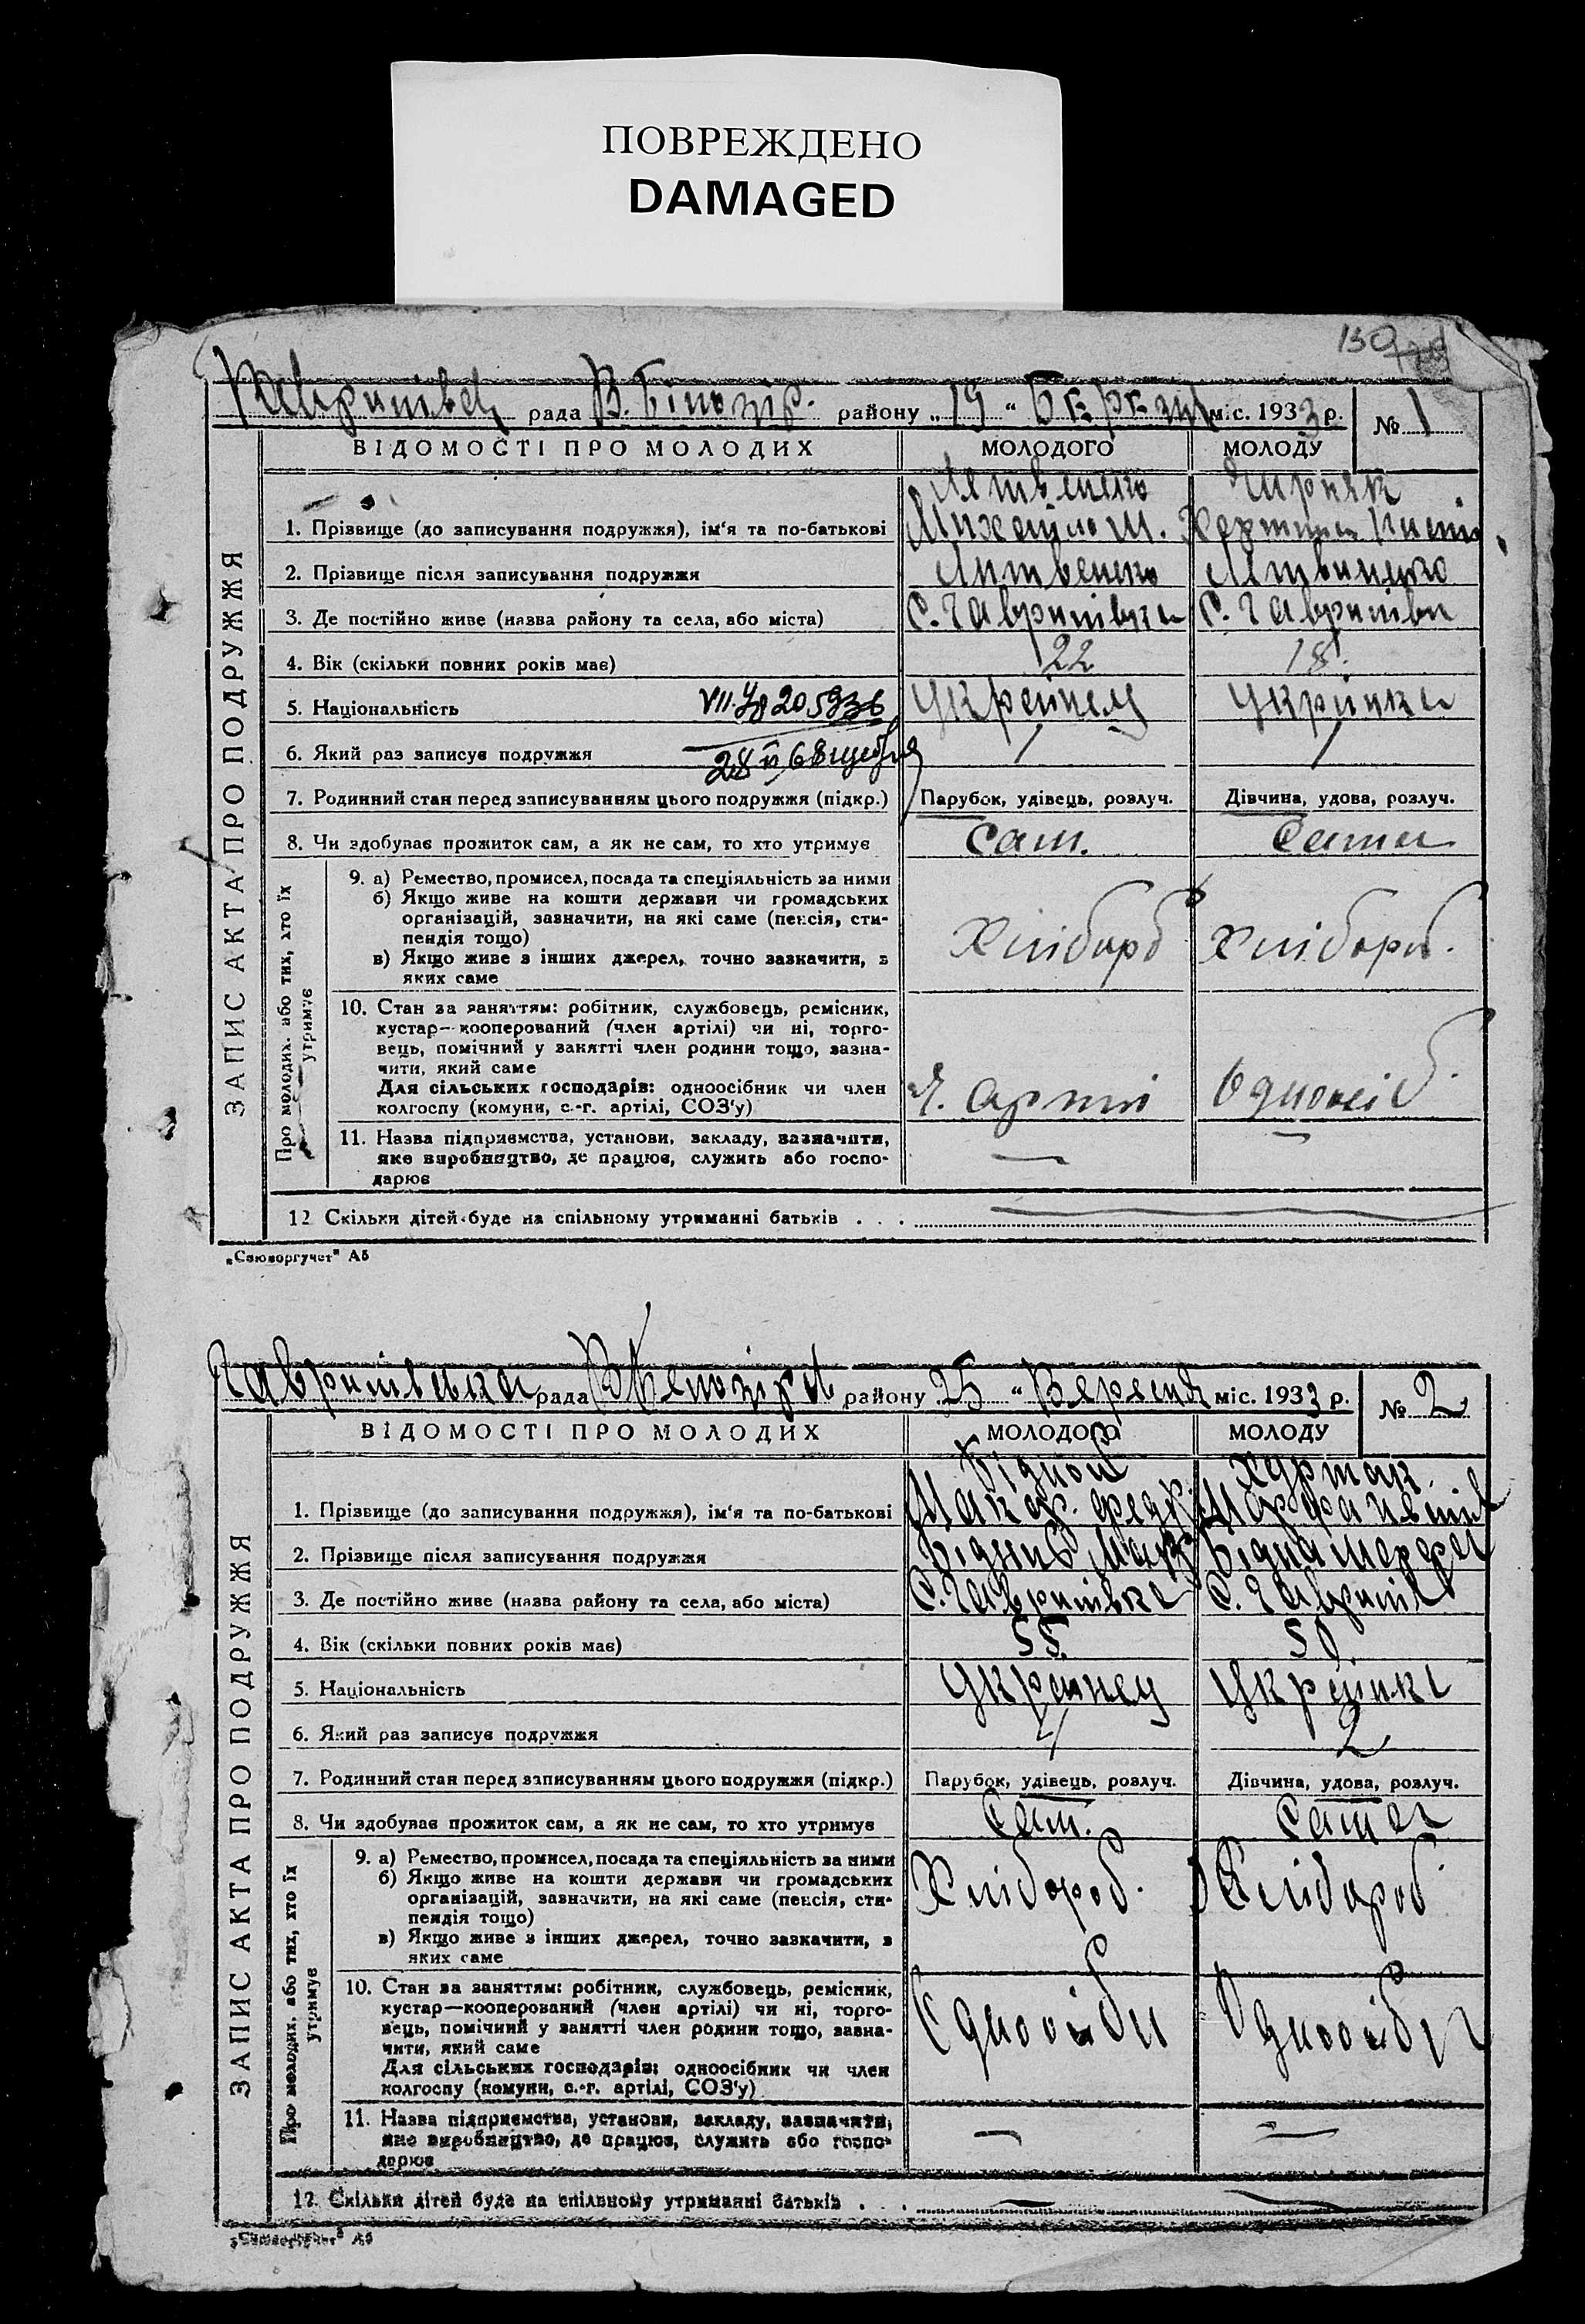 ПОВРЕЖДЕНО
DAMAGED
130
рада В. Білозір. району „19 “ Березня міс. 1933 р. № 1
ВІДОМОСТІ ПРО МОЛОДИХ МОЛОДОГО МОЛОДУ
ЗАПИС АКТА ПРО ПОДРУЖЖЯ
1. Прізвище (до записування подружжя), ім‘я та по-батькові Михайло
2. Прізвище після записування подружжя Литвенеко
3. Де постійно живе (назва району та села, або міста) С. Гаврилівка С. Гаврилівки
4. Вік (скільки повних років має) 22 18.
5. Національність Українец Українка
6. Який раз записує подружжя 1 1
7. Родинний стан перед записуванням цього подружжя (підкр.) Парубок, удівець, розлуч. Дівчина, удова, розлуч.
8. Чи здобуває прожиток сам, а як не сам, то хто утримує Сам. Сама
Про молодих. або тих, хто їх утримує
9. а) Ремество, промисел, посада та спеціяльність за ними
б) Якщо живе на кошти держави чи громадських
організацій, зазначити, на які саме (пенсія, сти-
пендія тощо) Хліборб Хліборб.
в) Якщо живе з інших джерел, точно зазначити, з
яких саме
10. Стан за заняттям: робітник, службовець, ремісник,
кустар—кооперований (член артілі) чи ні, торго-
вець, помічний у занятті член родини тощо, зазна-
чити, який саме
Для сільських господарів: одноосібник чи член
колгоспу (комуни, с.-г. артілі, СОЗ‘у) Ч. артілі Одноосіб.
11. Назва підприємства, установи, закладу, зазначити,
яке виробництво, де працює, служить або госпо-
дарює — —
12 Скільки дітей буде на спільному утриманні батьків . . .
„Союзоргучет“ А5
Гаврилівська рада району 25 “ Вересня міс. 1933 р. № 2
ВІДОМОСТІ ПРО МОЛОДИХ МОЛОДОГО МОЛОДУ
ЗАПИС АКТА ПРО ПОДРУЖЖЯ
Бідной
1. Прізвище (до записування подружжя), ім‘я та по-батькові Макар. Марфа
2. Прізвище після записування подружжя Бідний Бідна Марфа
3. Де постійно живе (назва району та села, або міста) С. Гаврилівка С. Гаврилів
4. Вік (скільки повних років має) 55. 50.
5. Національність Украинец Українкі
6. Який раз записує подружжя 4 2
7. Родинний стан перед записуванням цього подружжя (підкр.) Парубок, удівець, розлуч. Дівчина, удова, розлуч.
8. Чи здобуває прожиток сам, а як не сам, то хто утримує Сам. Сама
Про молодих. або тих, хто їх утримує
9. а) Ремество, промисел, посада та спеціяльність за ними
б) Якщо живе на кошти держави чи громадських
організацій, зазначити, на які саме (пенсія, сти-
пендія тощо) Хлібороб. Хлібороб
в) Якщо живе з інших джерел, точно зазначити, з
яких саме
10. Стан за заняттям: робітник, службовець, ремісник,
кустар—кооперований (член артілі) чи ні, торго-
вець, помічний у занятті член родини тощо, зазна-
чити, який саме
Для сільських господарів: одноосібник чи член
колгоспу (комуни, с.-г. артілі, СОЗ‘у)
11. Назва підприємства, установи, закладу, зазначити,
яке виробництво, де працює, служить або госпо-
дарює — —
12. Скільки дітей буде на спільному утриманні батьків . . .
„Союзоргучет“ А5